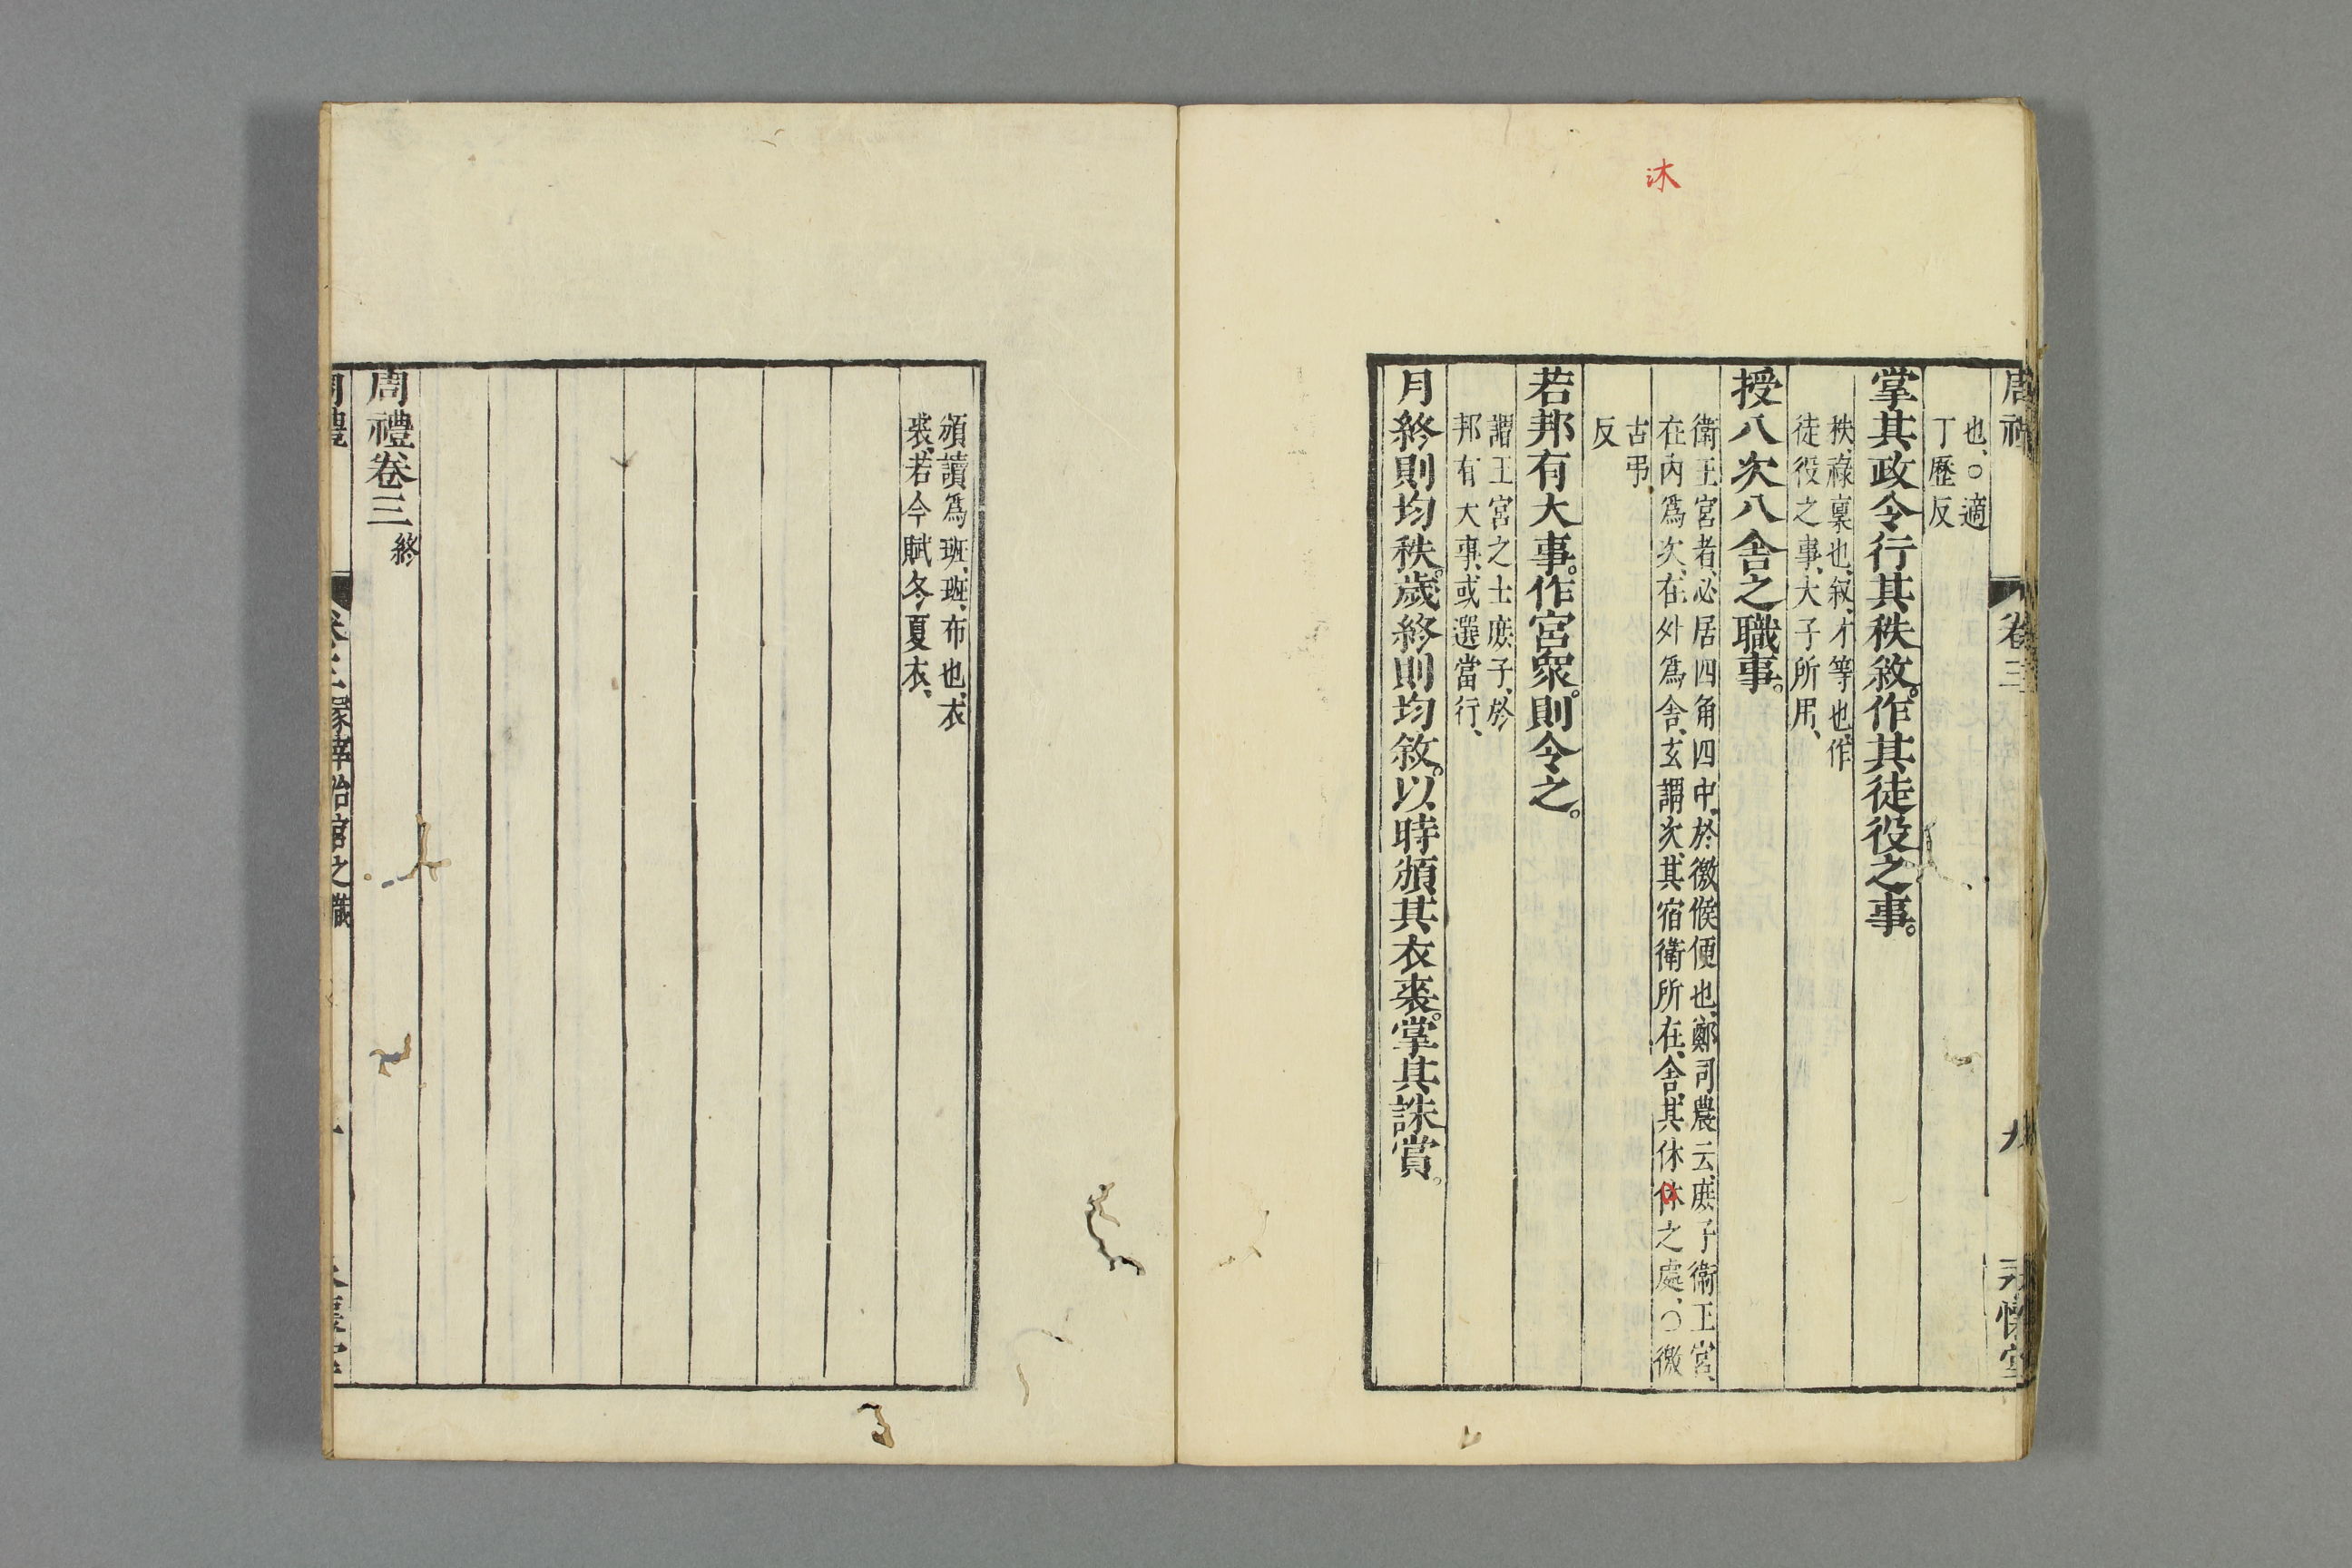 周禮
卷三
九
永懷堂
也、○適
丁歷反
掌其政令行其秩敘。作其徒役之事。
秩、祿稟也、叙、才等也、作
徒役之事、大子所用、
授八次八舍之職事。
衛王宮者、必居四角四中、於徼候便也、鄭司農云、庶子衛王宮、
在內爲次、在外爲舍、玄謂次、其宿衛所在、舍、其休休之處、○徼
古弔
反
沐
若邦有大事。作宮衆。則令之。
謂王宮之士庶子、於
邦有大事、或選當行、
月終則均秩。歲終則均敘。以時頒其衣裘。掌其誅賞。
頒讀爲班、班、布也、衣
裘、若今賦冬夏衣、
周禮卷三終
周禮
卷三冢宰治官之職